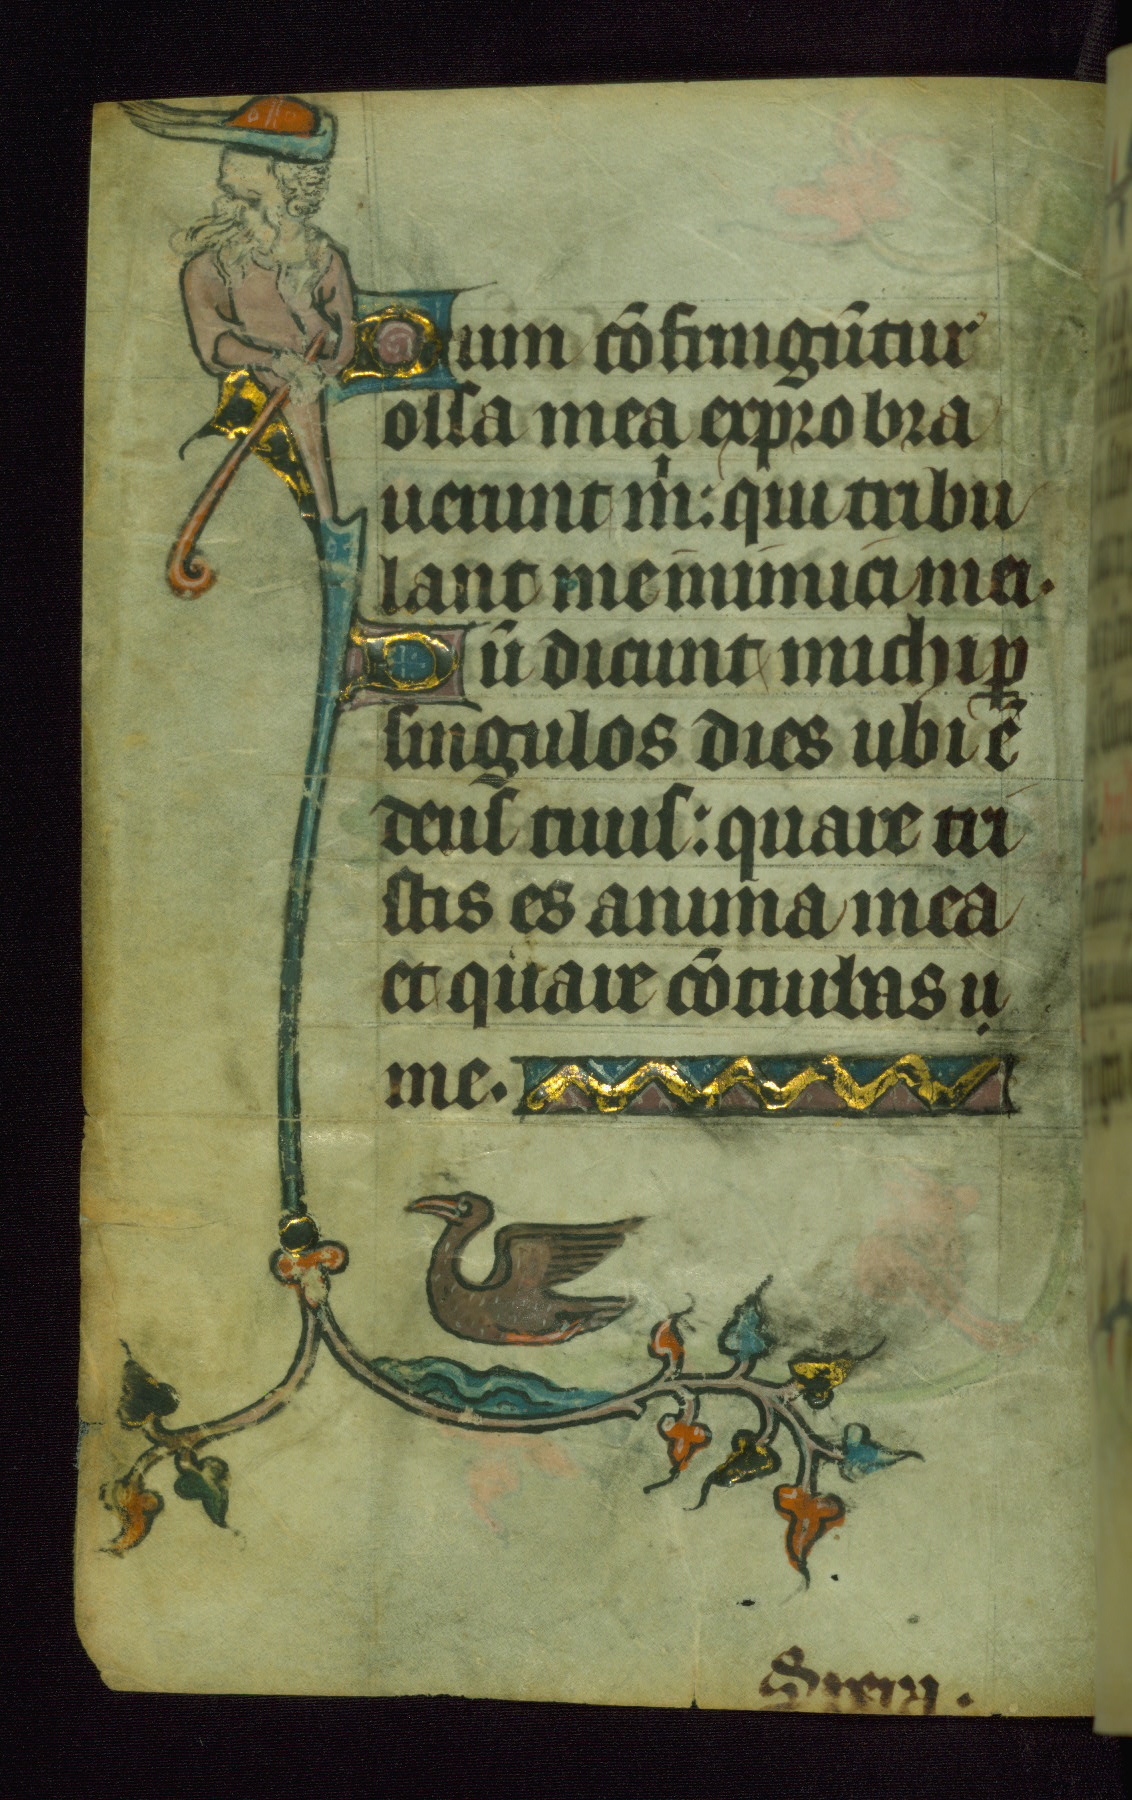 Dum cōfringūtur
ossa mea exprobra
uerunt m̍: qui tribu
lant me inimici mei.
Dū dicunt michi ꝑ
singulos dies ubi ē
deus tuus: quare tri
stis es anima mea
et quare cōturbas ·
me.